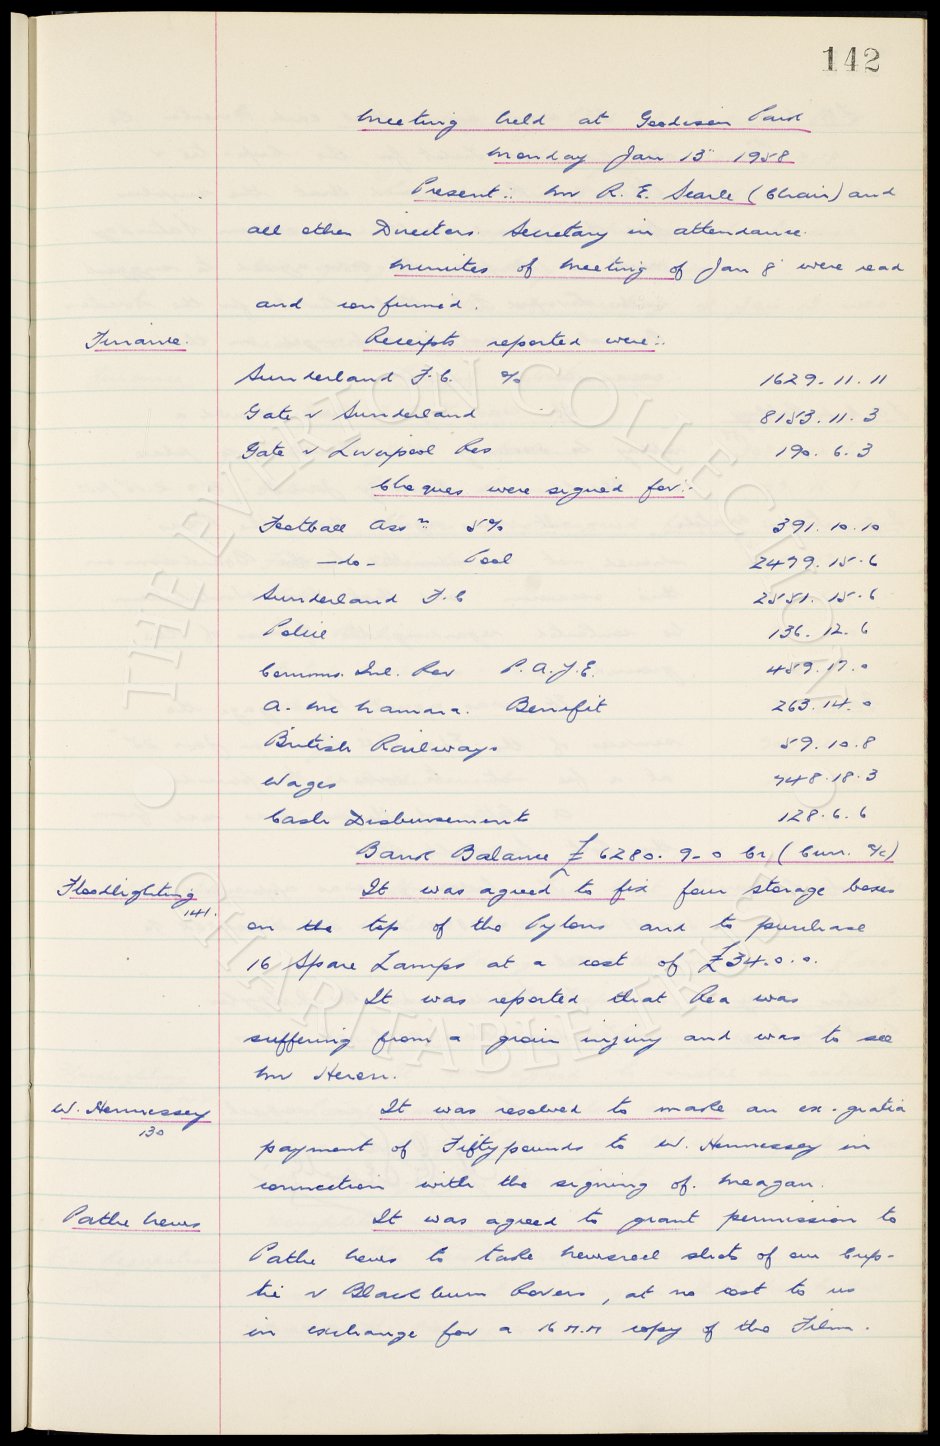 142
Meeting held at Goodison Park
Monday Jan 13" 1958
Present:- Mr R. E. Searle (Chair) and
all other Directors. Secretary in attendance.
Minutes of Meeting of Jan 8" were read
and confirmed.
Finance. Receipts reported were:-
Sunderland F.C. % 1629. 11. 11
Gate v Sunderland 8153. 11. 3
Gate v Liverpool Res 190. 6. 3
Cheques were signed for:-
Football Assn 5% 391. 10. 10
-do- Pool 2479. 15. 6
Sunderland F.C 2551. 15. 6
Police 136. 12. 6
Comms. Inl. Rev P.A.Y.E. 459. 17. 0
A. McNamara. Benefit 263. 14. 0
British Railways 59. 10. 8
Wages 748. 18. 3
Cash Disbursements 128. 6. 6
Bank Balance £6280. 9-0 Cr (Curr. a/c)
Floodlighting 141. It was agreed to fix four storage boxes
on the top of the Pylons and to purchase
16 Spare Lamps at a cost of £34. 0. 0.
It was reported that Rea was
suffering from a groin injury and was to see
Mr Heron.
W. Hennessey 130 It was resolved to make an ex-gratia
payment of Fifty pounds to W. Hennessey in
connection with the signing of Meagan.
Pathe News It was agreed to grant permission to
Pathe News to take newsreel shots of our Cup-
tie v Blackburn Rovers, at no cost to us
in exchange for a 16 M.M copy of the Film.
© THE EVERTON COLLECTION
CHARITABLE TRUST